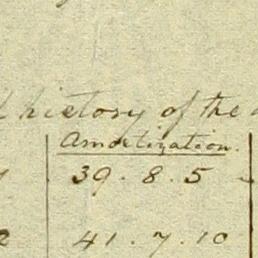 history of the
Amortization.
39. 8. 5
41. 7. 10